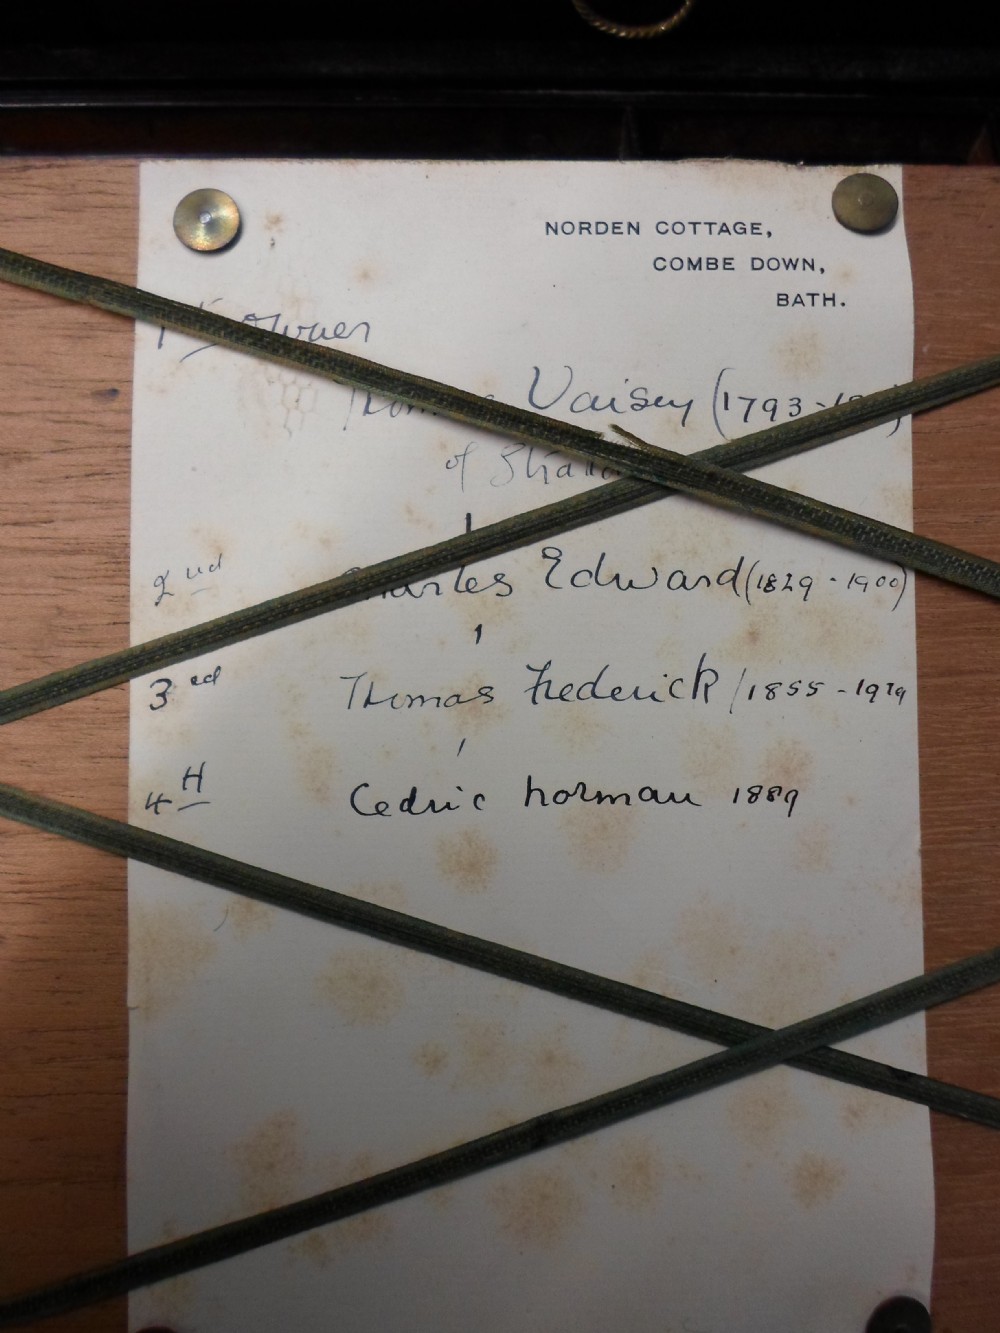 NORDEN COTTAGE,
COMBE DOWN,
BATH.
1st Owner
Thomas Vaisey (1793-
of
2nd Charles Edward (1829 - 1900)
3rd Thomas Frederick (1855 - 1929
4th Cedric Norman 1889